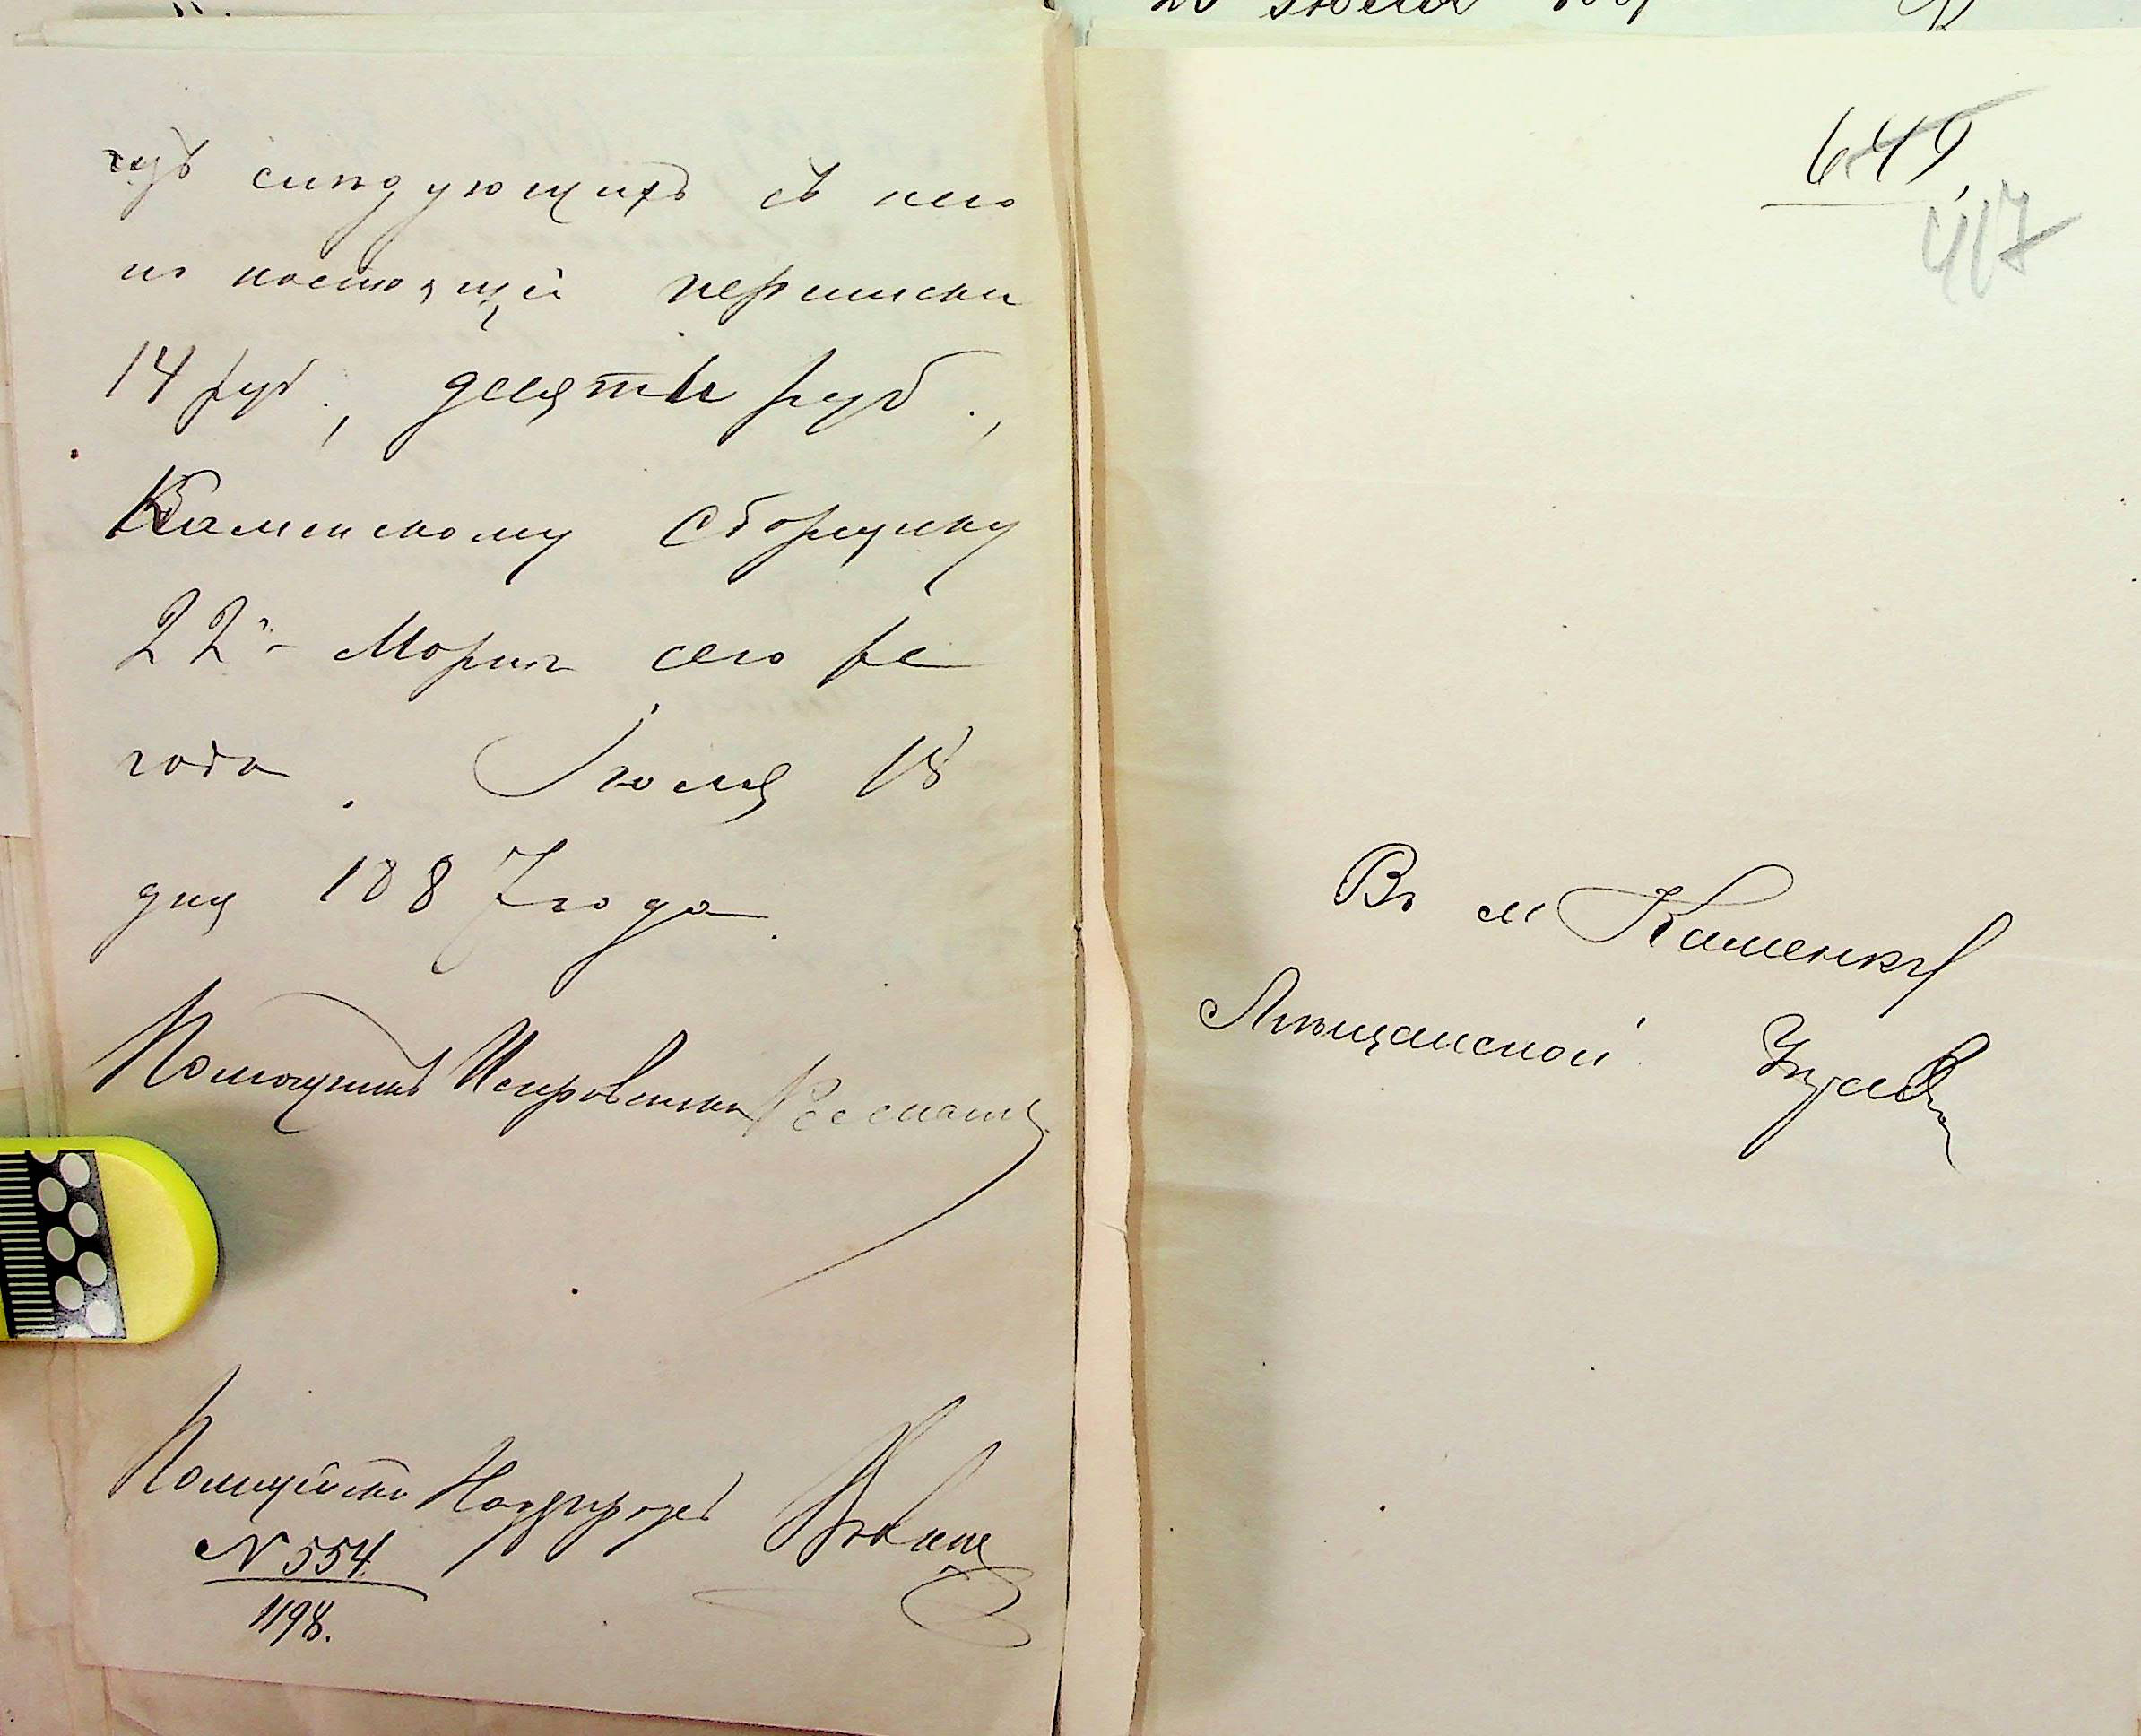 слѣдующихъ съ него
по настоящей переписки
14 руб., десять руб.,
Каменскому сборщику
22го Марта сего же
года. Іюля 18
дня 1887 года.
Помощникъ Исправника
Полицейскій Надзиратель
N 554.
1198.
649,
417
Въ м Каменку
Мѣщанской Управѣ